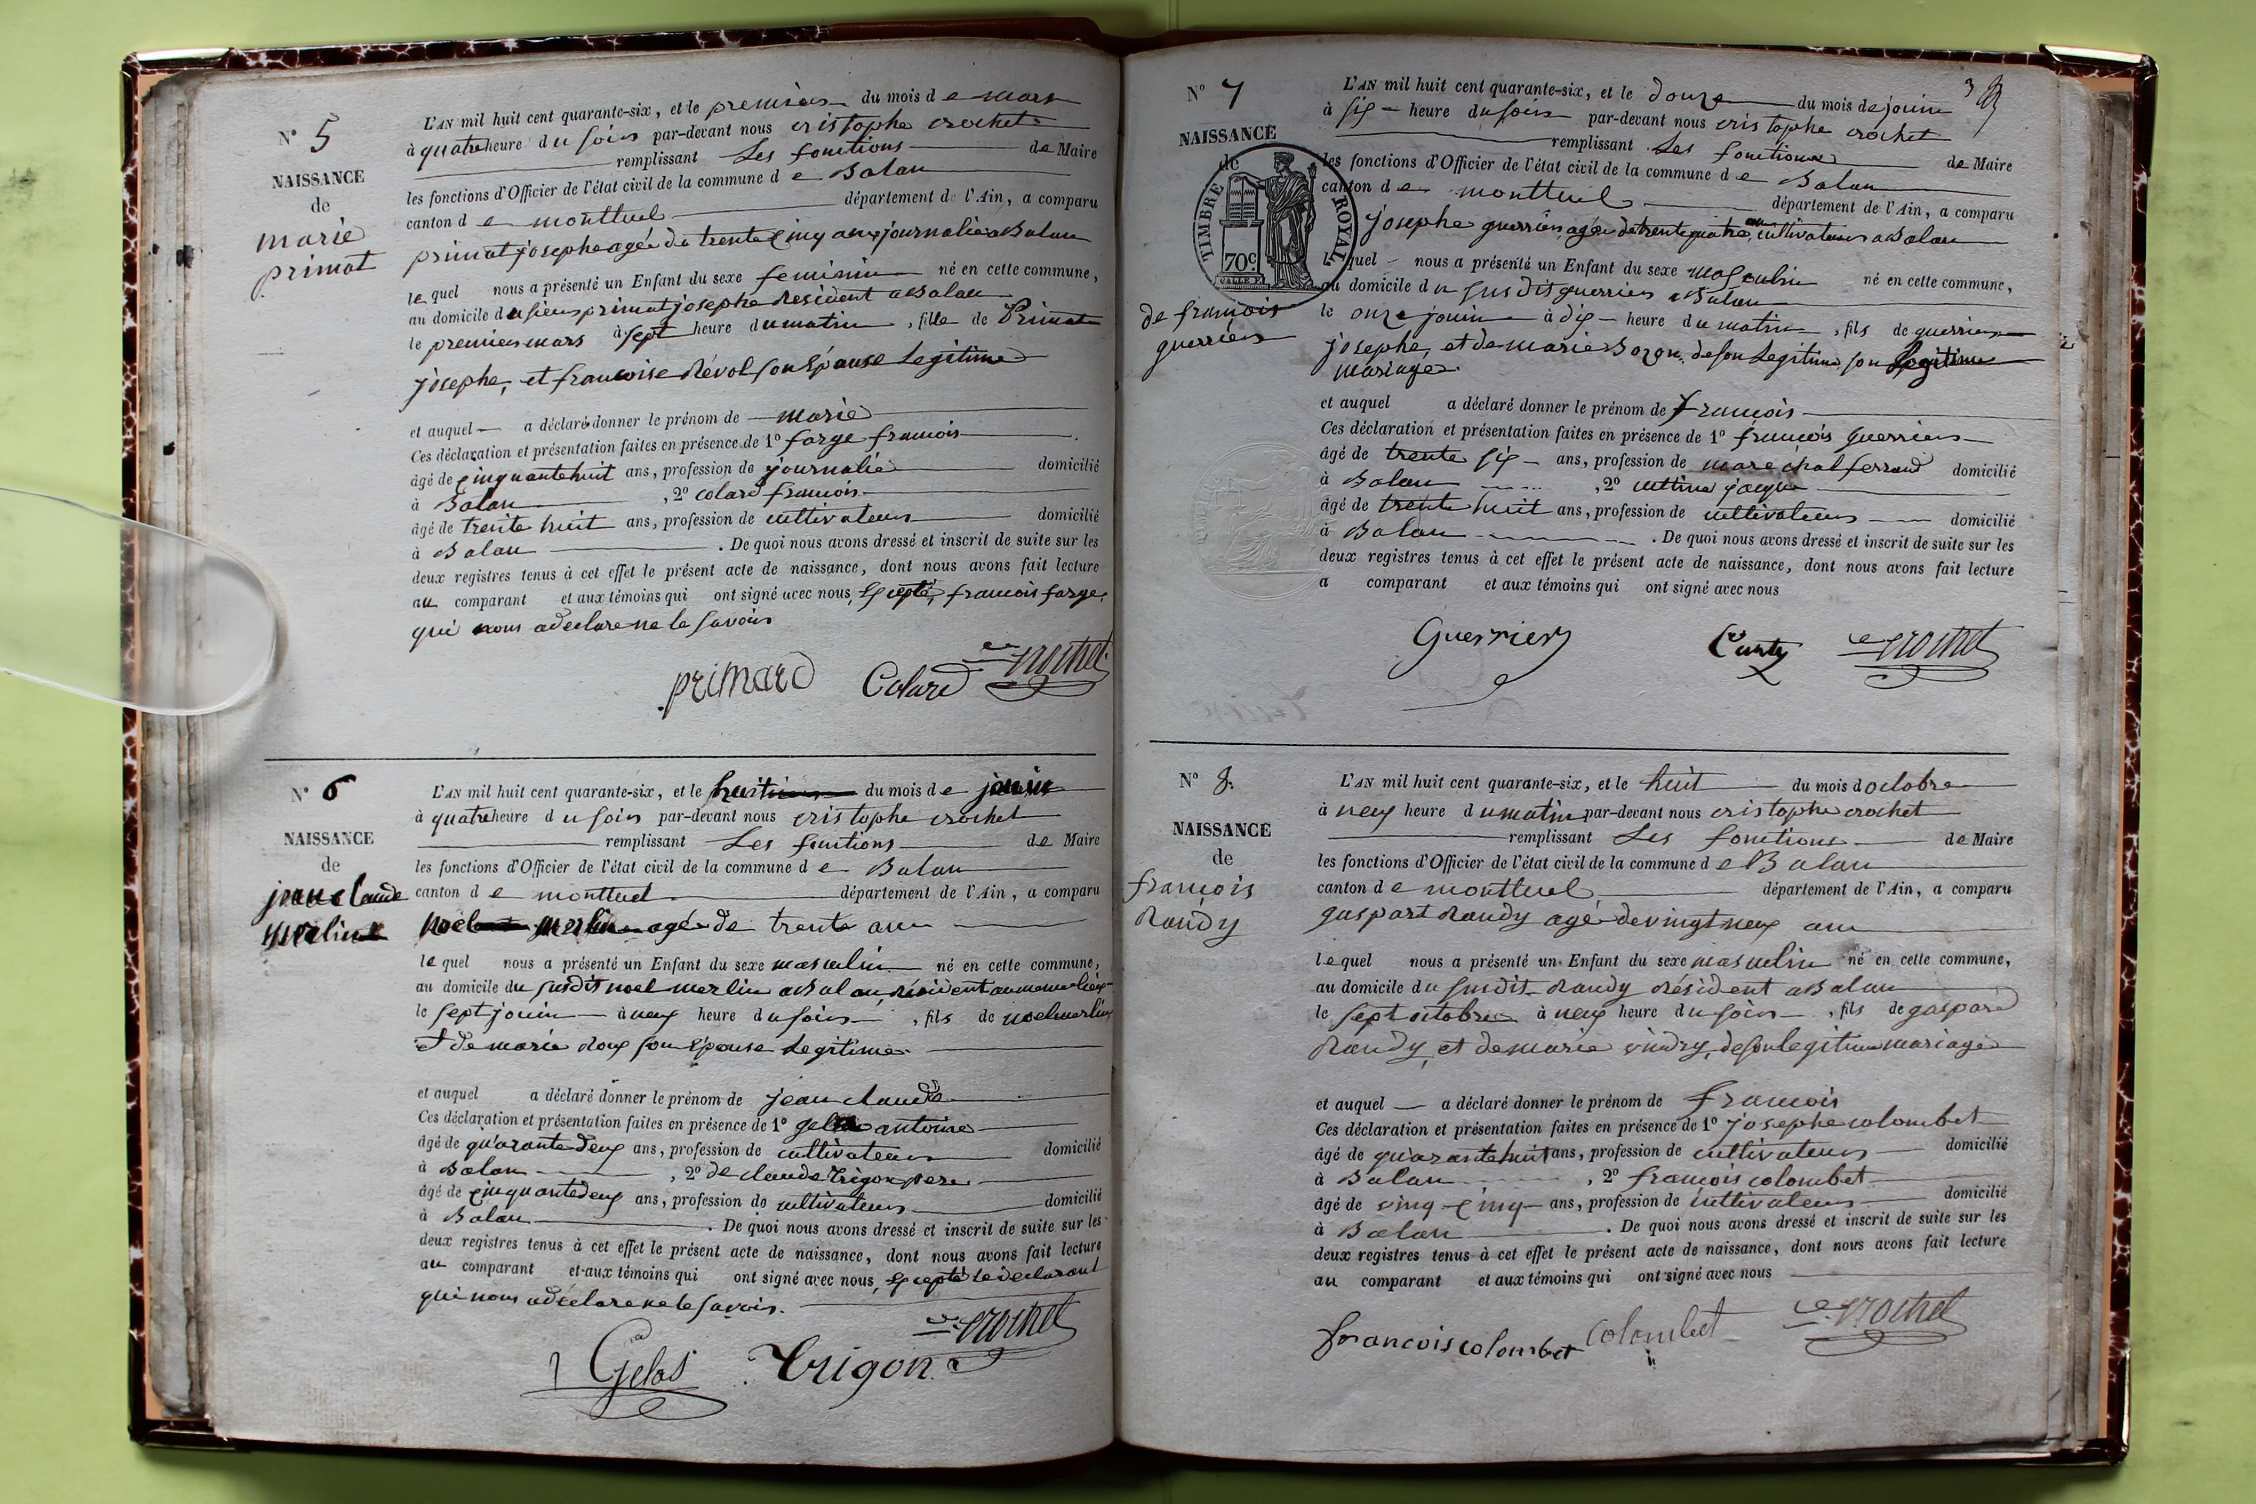 N° 5
NAISSANCE
de
marie
primat
L'AN mil huit cent quarante-six, et le premier du mois de mars
à quatre heure du soir par-devant nous cristophe crochet
remplissant Les fonctions de Maire
les fonctions d'Officier de l'état civil de la commune de Balan
canton de montluel département de l'Ain, a comparu
primat josephe agée de trente cinq ans journalié a Balan
le quel nous a présenté un Enfant du sexe feminin né en cette commune,
au domicile du sieur primat josephe résident a Balan
le premier mars à sept heure du matin, fille de Primat
josephe, et francoise Révol son épouse Legitime
et auquel a déclaré donner le prénom de marie
Ces déclaration et présentation faites en présence de 1° farge francois
âgé de cinquante huit ans, profession de journalié domicilié
à Balan, 2° colard francois
âgé de trente huit ans, profession de cultivateur domicilié
à Balan. De quoi nous avons dressé et inscrit de suite sur les
deux registres tenus à cet effet le présent acte de naissance, dont nous avons fait lecture
au comparant et aux témoins qui ont signé avec nous, excepté, francois farge,
qui nous a declare ne le savoir
primard Colard crochet
N° 6
NAISSANCE
de
jean claude
merlin
L'AN mil huit cent quarante-six, et le huit du mois de jouin
à quatre heure du soir par-devant nous cristophe crochet
remplissant Les fonctions de Maire
les fonctions d'Officier de l'état civil de la commune de Balan
canton de montluel département de l'Ain, a comparu
noel merlin agé de trente ans
le quel nous a présenté un Enfant du sexe masculin né en cette commune,
au domicile du susdit noel merlin a Balan, résident au meme lieu
le sept jouin à neuf heure du soir, fils de noel merlin
et de marie doux son épouse Legitime
et auquel a déclaré donner le prénom de jean claude
Ces déclaration et présentation faites en présence de 1° antoine
âgé de quarante deux ans, profession de cultivateur domicilié
à Balan, 2° de claude trigon pere
âgé de cinquante deux ans, profession de cultivateur domicilié
à Balan. De quoi nous avons dressé et inscrit de suite sur les
deux registres tenus à cet effet le présent acte de naissance, dont nous avons fait lecture
au comparant et aux témoins qui ont signé avec nous, excepté le declarant
qui nous a déclare ne le savoir.
Gelas trigon crochet
3
N° 7
NAISSANCE
de
TIMBRE ROYAL
70c
de françois
guerrier
L'AN mil huit cent quarante-six, et le douze du mois de jouin
à six heure du soir par-devant nous cristophe crochet
remplissant Les fonctions de Maire
les fonctions d'Officier de l'état civil de la commune de Balan
canton de montluel département de l'Ain, a comparu
josephe guerrier agée de trente quatre an cultivateur a Balan
le quel nous a présenté un Enfant du sexe masculin né en cette commune,
au domicile du susdit guerrier a Balan
le onze jouin à dix heure du matin, fils de guerrier
josephe, et de marie Bozon, de son Legitime son Legitime
mariage
et auquel a déclaré donner le prénom de françois
Ces déclaration et présentation faites en présence de 1° françois guerrier
âgé de trente six ans, profession de marechal ferrand domicilié
à Balan, 2°
âgé de trente huit ans, profession de cultivateur domicilié
à Balan. De quoi nous avons dressé et inscrit de suite sur les
deux registres tenus à cet effet le présent acte de naissance, dont nous avons fait lecture
a comparant et aux témoins qui ont signé avec nous
Guerrier crochet
N° 8
NAISSANCE
de
françois
Randy
L'AN mil huit cent quarante-six, et le huit du mois d octobre
à neuf heure du matin par-devant nous cristophe crochet
remplissant Les fonctions de Maire
les fonctions d'Officier de l'état civil de la commune de Balan
canton de montluel département de l'Ain, a comparu
gaspart Randy agé de vingt neuf an
le quel nous a présenté un Enfant du sexe masculin né en cette commune,
au domicile du susdit Randy résident a Balan
le sept octobre à neuf heure du soir, fils de gaspard
Randy, et de marie vindry, de son legitime mariage
et auquel a déclaré donner le prénom de françois
Ces déclaration et présentation faites en présence de 1° josephe colombet
âgé de quarante huit ans, profession de cultivateur domicilié
à Balan, 2° françois colombet
âgé de vinq cinq ans, profession de cultivateur domicilié
à Balan. De quoi nous avons dressé et inscrit de suite sur les
deux registres tenus à cet effet le présent acte de naissance, dont nous avons fait lecture
au comparant et aux témoins qui ont signé avec nous
francois colombet colombet crochet